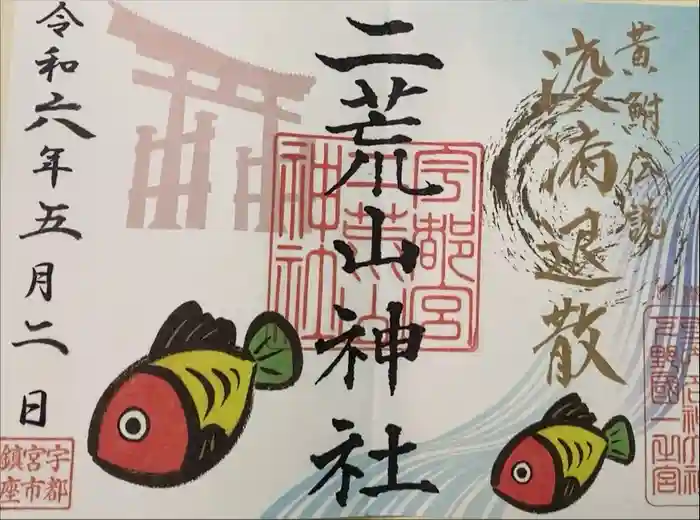 黄鮒伝説
疫病退散
二荒山神社
宇都宮
二荒山
神社
令和六年五月二日
宇都
宮市
鎮座
下野國一之宮